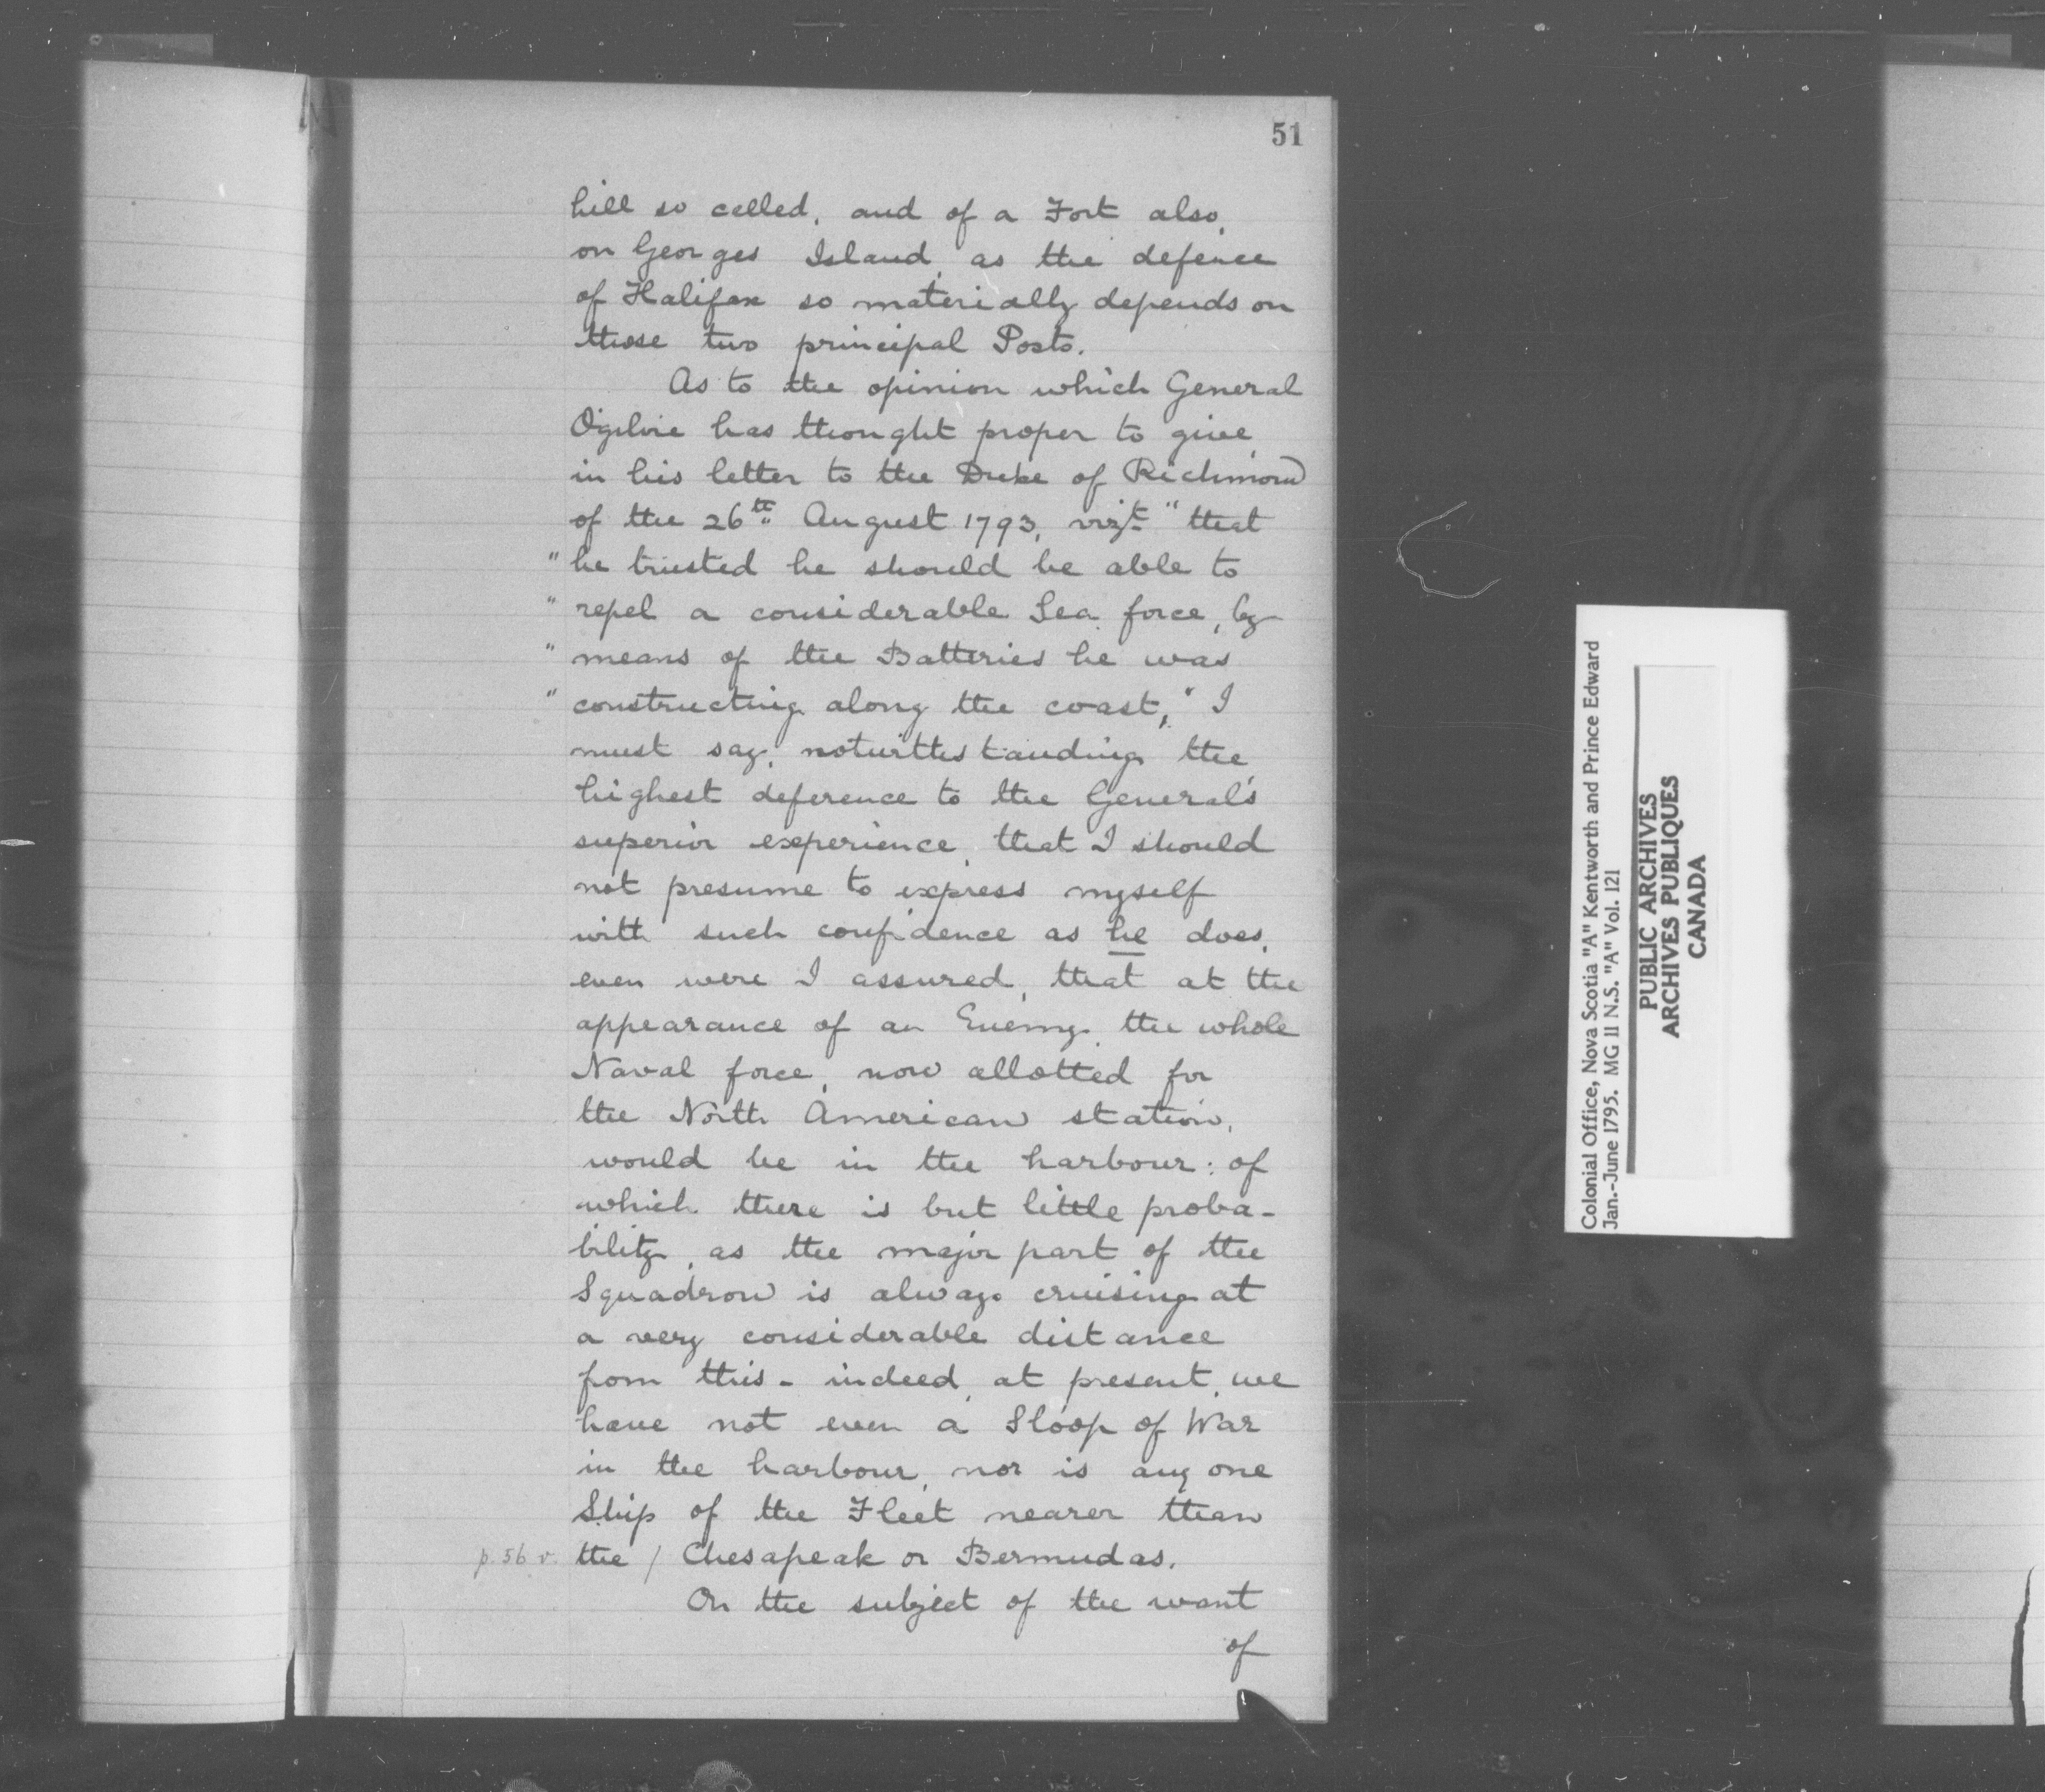 51
hill so called, and of a Fort also,
on Georges Island, as the defence
of Halifax so materially depends on
those two principal Posts.
As to the opinion which General
Ogilvie has thought proper to give,
in his letter to the Duke of Richmond
of the 26th August 1793, vizt "that
"he trusted he should be able to
"repel a considerable Sea force, by
"means of the Batteries he was
"constructing along the coast," I
must say, notwithstanding the
highest deference to the General's
superior experience, that I should
not presume to express myself
with such confidence as he does,
even were I assured, that at the
appearance of an Enemy, the whole
Naval force, now allotted for
the North American station,
would be in the harbour: of
which there is but little proba-
bility, as the major part of the
Squadron is always cruising at
a very considerable distance
from this - indeed, at present, we
have not even a Sloop of War
in the harbour, nor is any one
Ship of the Fleet nearer than
p. 56 v. the / Chesapeak or Bermudas.
On the subject of the want
of
Colonial Office, Nova Scotia "A" Kentworth and Prince Edward
Jan.-June 1795. MG 11 N.S. "A" Vol. 121
PUBLIC ARCHIVES
ARCHIVES PUBLIQUES
CANADA